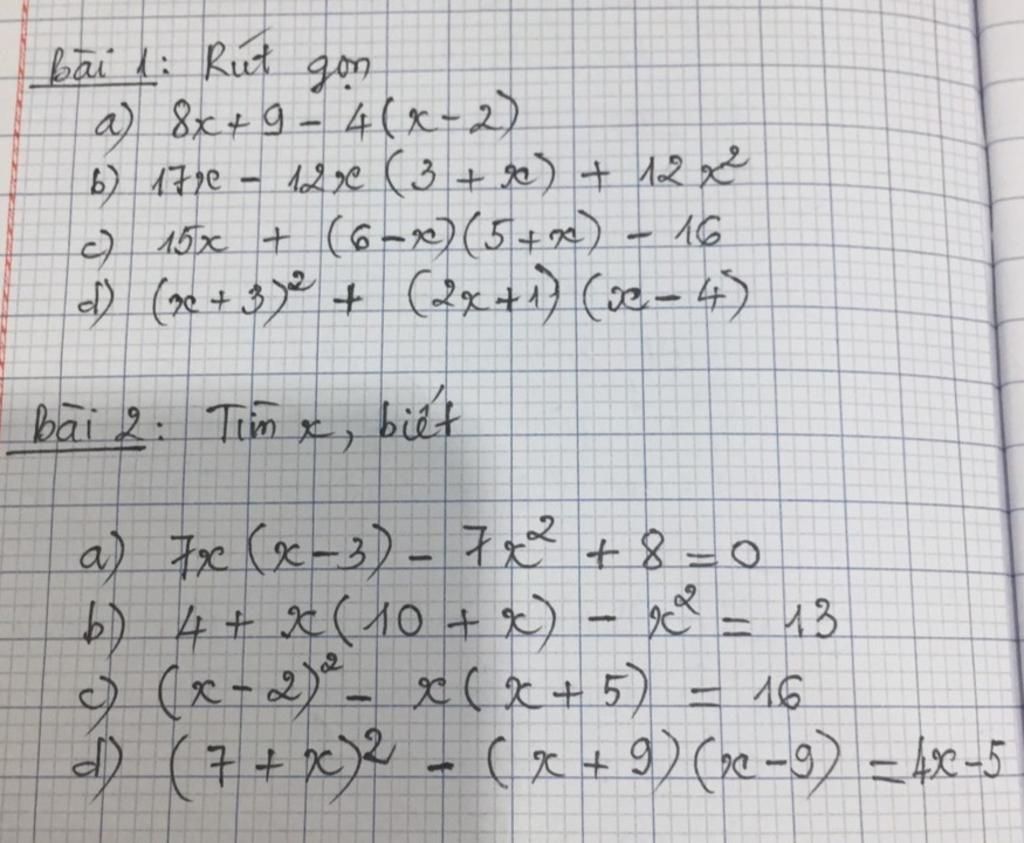 Bài 1: Rút gọn
a) 8x + 9 - 4(x - 2)
b) 17x - 12x (3 + x) + 12x²
c) 15x + (6 - x)(5 + x) - 16
d) (x + 3)² + (2x + 1) (x - 4)
Bài 2: Tìm x, biết
a) 7x (x - 3) - 7x² + 8 = 0
b) 4 + x(10 + x) - x² = 13
c) (x - 2)² - x( x + 5) = 16
d) (7 + x)² - (x + 9)(x - 9) = 4x - 5